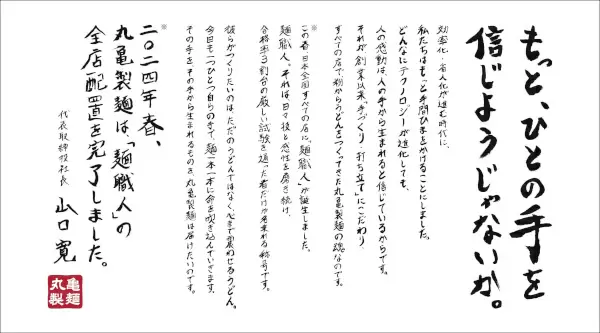 もっと、ひとの手を
信じようじゃないか。
効率化・省人化が進む時代に、
私たちはもっと手間ひまをかけることにしました。
どんなにテクノロジーが進化しても、
人の感動は、人の手から生まれると信じているからです。
それが創業以来、「手づくり、打ち立て」にこだわり
すべての店で粉からうどんをつくってきた丸亀製麺の魂なのです。
この春、日本全国すべての店に、「麺職人」が誕生しました。※
麺職人。それは、日々技と感性を磨き続け、
合格率3割台の厳しい試験を通った者だけが名乗れる称号です。
彼らがつくりたいのは、ただのうどんではなく、心まで震わせるうどん。
今日も一つひとつ自らの手で、麺一本一本に命を吹き込んでいきます。
その手を、その手から生まれるものを、丸亀製麺は届けたいのです。
※
二〇二四年春、
丸亀製麺は、「麺職人」の
全店配置を完了しました。
代表取締役社長 山口寛
亀麺
丸製